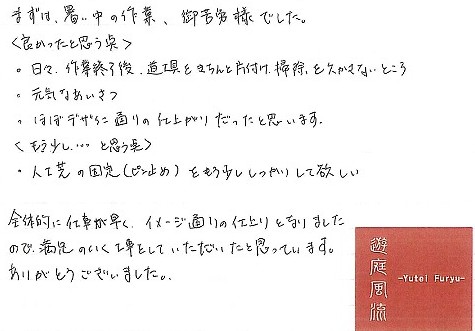 まずは、暑い中の作業、御苦労様でした。
＜良かったと思う点＞
・日々、作業終了後、道具をきちんと片付け、掃除を欠かさないところ
・元気なあいさつ
・ほぼデザイン通りの仕上がりだったと思います。
＜もう少し…と思う点＞
・人工芝の固定(ピン止め)をもう少ししっかりして欲しい
全体的に仕事が早く、イメージ通りの仕上りとなりました
ので、満足のいく工事としていただいたと思っています。
ありがとうございました。
遊庭風流
-Yutei Furyu-